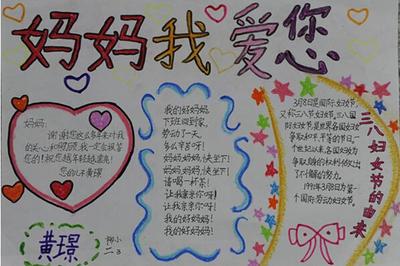 妈妈我爱您
妈妈:
谢谢您这么多年来对我
的关心和照顾,我一定会报答
您的!祝您越来越漂亮!
您的儿子黄璟
黄璟
柳小
二3
我的好妈妈,
下班回到家,
劳动了一天,
多么辛苦呀!
妈妈妈妈,快坐下!
妈妈妈妈,快坐下!
请喝一杯茶!
让我亲亲你呀!
让我亲亲你呀!
我的好妈妈!
我的好妈妈!
3月8日是国际妇女节,
又称三八妇女节,三八国
际妇女节,是世界各国妇女
争取和平、平等的节日。
个世纪以来,各国妇女为
争取权利作出了
不懈的努力。
1911年3月8日为第一
个国际劳动妇女节。
三八妇女节的由来